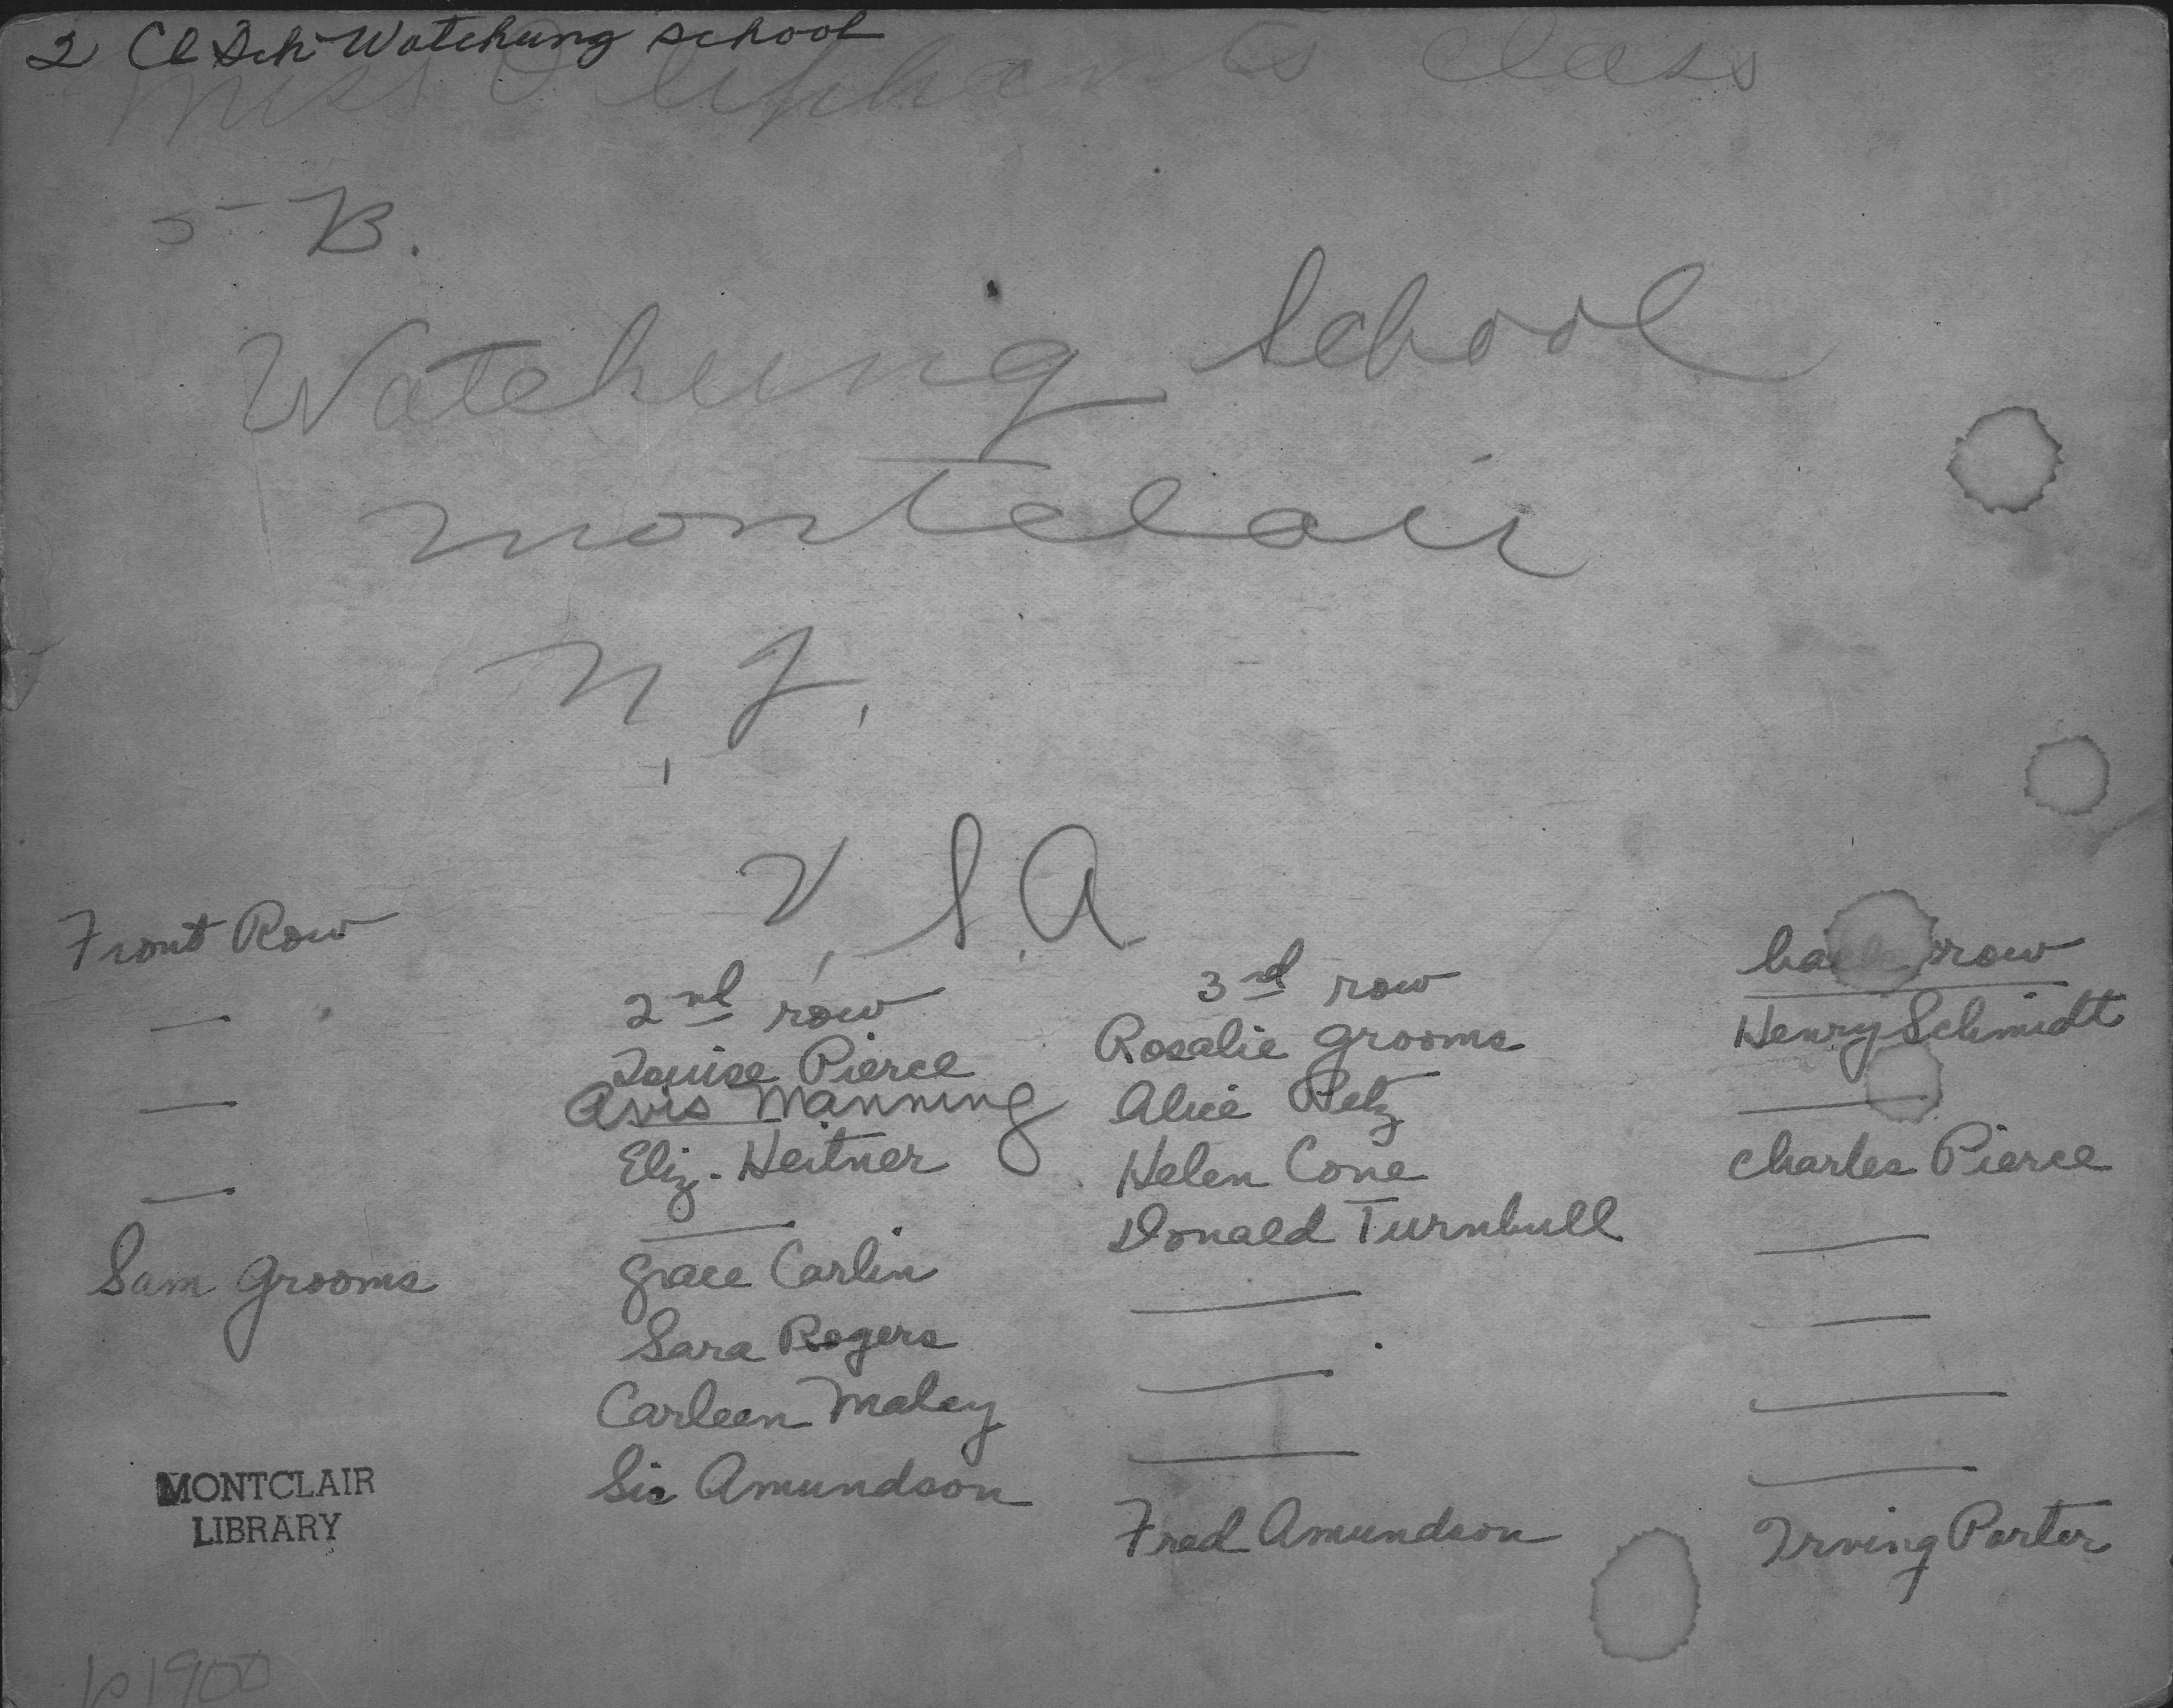 2 Cl Sch Watchung school
Miss Oliphants Class
5 B.
Watchung School
Montclair
N, J,
U, S, A
Front Row
—
—
—
Sam Grooms
2nd row
Louise Pierce
Avis Manning
Eliz. Heitner
—
Grace Carlin
Sara Rogers
Carleen Maley
Sis Amundson
3rd row
Rosalie Grooms
Alice Petz
Helen Cone
Donald Turnbull
—
—
—
Fred Amundson
back row
Henry Schmidt
—
Charles Pierce
—
—
—
—
Irving Porter
MONTCLAIR
LIBRARY
1900